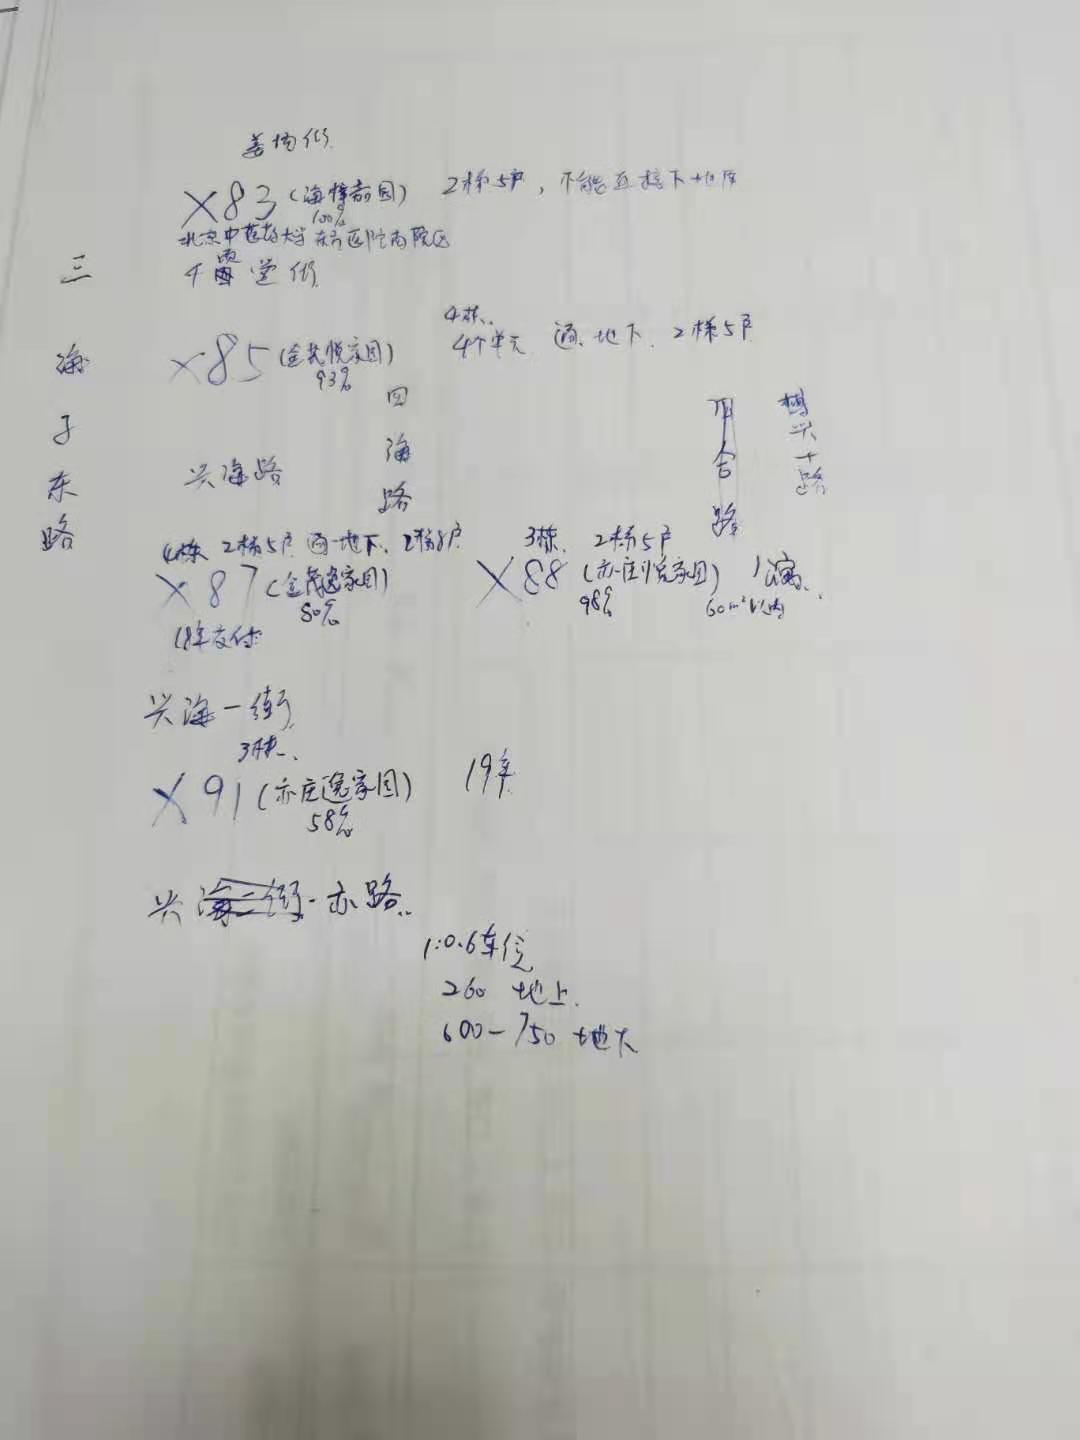 姜场街
X83(海梓嘉园) 2梯5户，不能直接下地库
100%
北京中医药大学东方医院南院区
千顷堂街
三海子东路
4栋、
X85(金茂悦家园) 4个单元 通、地下、2梯5户
93%
四海路
兴海路
合路
博兴十路
4栋 2梯5户 通地下、2梯8户
X87(金茂逸家园)
80%
18年交付
3栋、 2梯5户
X88(亦庄悦家园)
98% 60m²以内
兴海一街
3栋、
X91(亦庄逸家园) 19年
58%
兴海二街 - 亦 路
1:0.6车位
260 地上
600-750 地下